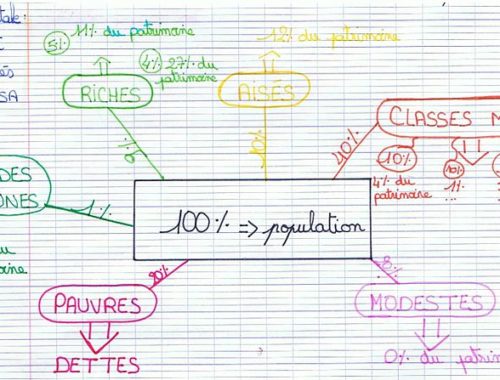 tale:
és
SA
11% du patrimoine
5%
4% 27% du
patrimoine
RICHES
9%
12% du patrimoine
AISÉS
10%
CLASSES M
40%
10%
4% du
patrimoine
10%
1%
...
DES
ONES
1%
100% => population
20%
PAUVRES
DETTES
20%
MODESTES
0% du patrim